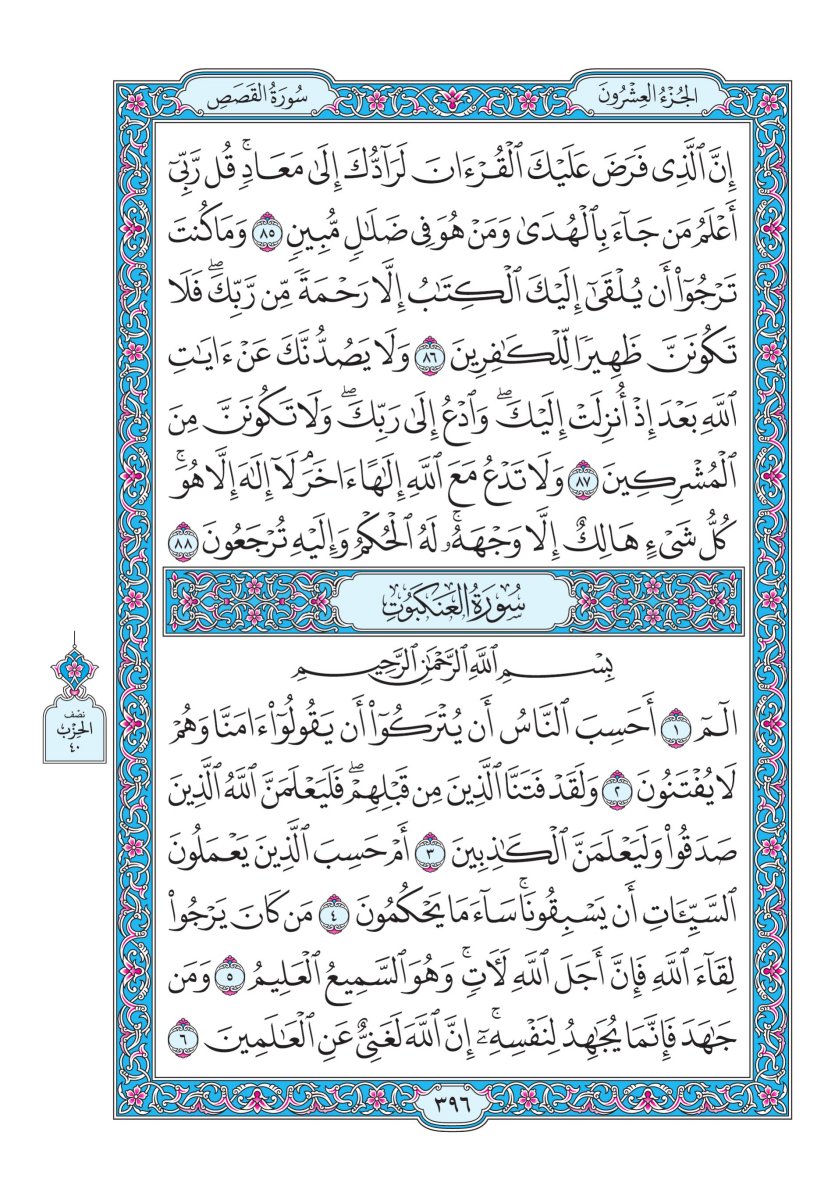 الجُزْءُ العِشْرُونَ
سُورَةُ القَصَصِ
إِنَّ ٱلَّذِى فَرَضَ عَلَيْكَ ٱلْقُرْءَانَ لَرَآدُّكَ إِلَىٰ مَعَادٍۚ قُل رَّبِّىٓ
أَعْلَمُ مَن جَآءَ بِٱلْهُدَىٰ وَمَنْ هُوَ فِى ضَلَٰلٍ مُّبِينٍ ٨٥ وَمَا كُنتَ
تَرْجُوٓا۟ أَن يُلْقَىٰٓ إِلَيْكَ ٱلْكِتَٰبُ إِلَّا رَحْمَةً مِّن رَّبِّكَۖ فَلَا
تَكُونَنَّ ظَهِيرًا لِّلْكَٰفِرِينَ ٨٦ وَلَا يَصُدُّنَّكَ عَنْ ءَايَٰتِ
ٱللَّهِ بَعْدَ إِذْ أُنزِلَتْ إِلَيْكَۖ وَٱدْعُ إِلَىٰ رَبِّكَۖ وَلَا تَكُونَنَّ مِنَ
ٱلْمُشْرِكِينَ ٨٧ وَلَا تَدْعُ مَعَ ٱللَّهِ إِلَٰهًا ءَاخَرَۘ لَآ إِلَٰهَ إِلَّا هُوَۚ
كُلُّ شَىْءٍ هَالِكٌ إِلَّا وَجْهَهُۥۚ لَهُ ٱلْحُكْمُ وَإِلَيْهِ تُرْجَعُونَ ٨٨
سُورَةُ العَنكَبُوتِ
بِسْمِ ٱللَّهِ ٱلرَّحْمَٰنِ ٱلرَّحِيمِ
الٓمٓ ١ أَحَسِبَ ٱلنَّاسُ أَن يُتْرَكُوٓا۟ أَن يَقُولُوٓا۟ ءَامَنَّا وَهُمْ
لَا يُفْتَنُونَ ٢ وَلَقَدْ فَتَنَّا ٱلَّذِينَ مِن قَبْلِهِمْۖ فَلَيَعْلَمَنَّ ٱللَّهُ ٱلَّذِينَ
صَدَقُوا۟ وَلَيَعْلَمَنَّ ٱلْكَٰذِبِينَ ٣ أَمْ حَسِبَ ٱلَّذِينَ يَعْمَلُونَ
ٱلسَّيِّـَٔاتِ أَن يَسْبِقُونَاۚ سَآءَ مَا يَحْكُمُونَ ٤ مَن كَانَ يَرْجُوا۟
لِقَآءَ ٱللَّهِ فَإِنَّ أَجَلَ ٱللَّهِ لَـَٔاتٍۚ وَهُوَ ٱلسَّمِيعُ ٱلْعَلِيمُ ٥ وَمَن
جَٰهَدَ فَإِنَّمَا يُجَٰهِدُ لِنَفْسِهِۦٓۚ إِنَّ ٱللَّهَ لَغَنِىٌّ عَنِ ٱلْعَٰلَمِينَ ٦
نصف
الحِزْب
٤٠
٣٩٦